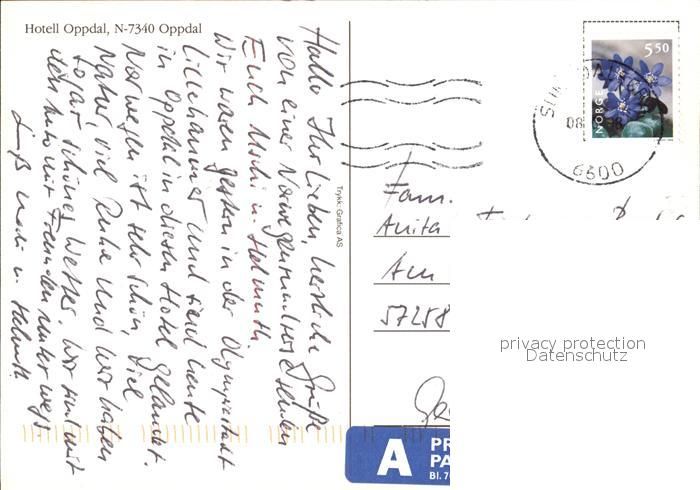 Hotell Oppdal, N-7340 Oppdal
Hallo Ihr Lieben, herzliche Grüße
von einer Norwegenrundreise senden
Euch Uschi u. Helmuth.
Wir waren gestern in der Olympiastadt
Lillehammer und sind heute
in Oppdal in diesem Hotel gelandet.
Norwegen ist sehr schön, viel
Natur, viel Ruhe und wir haben
sogar schönes Wetter. Wir sind mit
dem Auto mit Freunden unterwegs
Gruß Uschi u. Helmuth
Trykk: Grafica AS
NORGE
5 50
08
6600
Fam.
Anita
Am
57258
A PR
PA
Bl. 7
privacy protection
Datenschutz